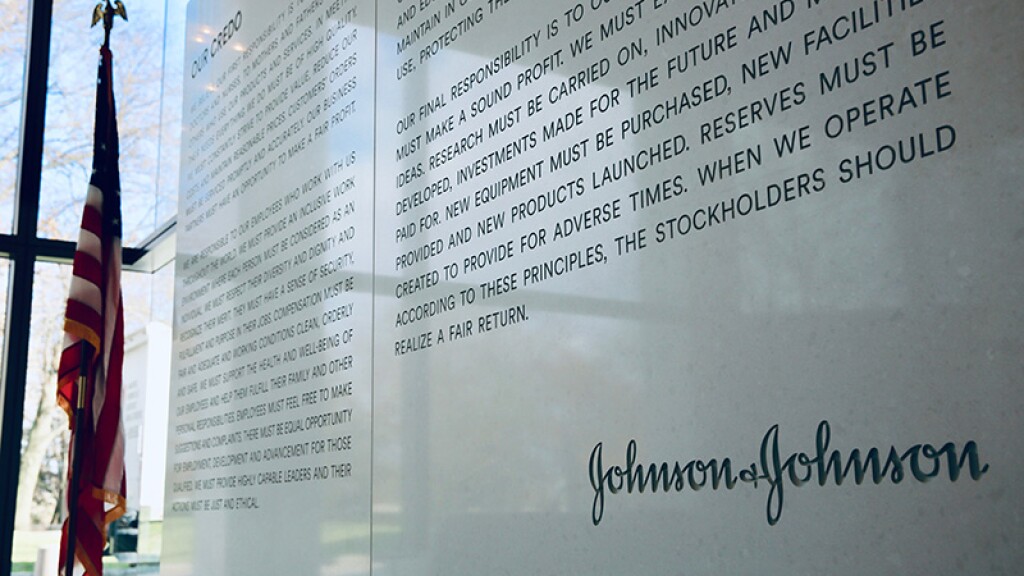 OUR CREDO
RESPONSIBILITY IS
NURSES, TO MOTHERS AND FATHERS
OUR PRODUCTS AND SERVICES. IN
EVERYTHING WE DO MUST BE OF HIGH QUALITY.
CONSTANTLY STRIVE TO PROVIDE VALUE, REDUCE OUR
COSTS AND MAINTAIN REASONABLE PRICES. CUSTOMERS' ORDERS
MUST BE SERVICED PROMPTLY AND ACCURATELY. OUR BUSINESS
PARTNERS MUST HAVE AN OPPORTUNITY TO MAKE A FAIR PROFIT.
WE ARE RESPONSIBLE TO OUR EMPLOYEES WHO WORK WITH US
THROUGHOUT THE WORLD. WE MUST PROVIDE AN INCLUSIVE WORK
ENVIRONMENT WHERE EACH PERSON MUST BE CONSIDERED AS AN
INDIVIDUAL. WE MUST RESPECT THEIR DIVERSITY AND DIGNITY AND
RECOGNIZE THEIR MERIT. THEY MUST HAVE A SENSE OF SECURITY,
FULFILLMENT AND PURPOSE IN THEIR JOBS. COMPENSATION MUST BE
FAIR AND ADEQUATE AND WORKING CONDITIONS CLEAN, ORDERLY
AND SAFE. WE MUST SUPPORT THE HEALTH AND WELL-BEING OF
OUR EMPLOYEES AND HELP THEM FULFILL THEIR FAMILY AND OTHER
PERSONAL RESPONSIBILITIES. EMPLOYEES MUST FEEL FREE TO MAKE
SUGGESTIONS AND COMPLAINTS. THERE MUST BE EQUAL OPPORTUNITY
FOR EMPLOYMENT, DEVELOPMENT AND ADVANCEMENT FOR THOSE
QUALIFIED. WE MUST PROVIDE HIGHLY CAPABLE LEADERS AND THEIR
ACTIONS MUST BE JUST AND ETHICAL.
AND
MAINTAIN IN
USE, PROTECTING THE
OUR FINAL RESPONSIBILITY IS TO
MUST MAKE A SOUND PROFIT. WE MUST
IDEAS. RESEARCH MUST BE CARRIED ON,
DEVELOPED, INVESTMENTS MADE FOR THE FUTURE AND
PAID FOR. NEW EQUIPMENT MUST BE PURCHASED, NEW FACILITIES
PROVIDED AND NEW PRODUCTS LAUNCHED. RESERVES MUST BE
CREATED TO PROVIDE FOR ADVERSE TIMES. WHEN WE OPERATE
ACCORDING TO THESE PRINCIPLES, THE STOCKHOLDERS SHOULD
REALIZE A FAIR RETURN.
Johnson & Johnson